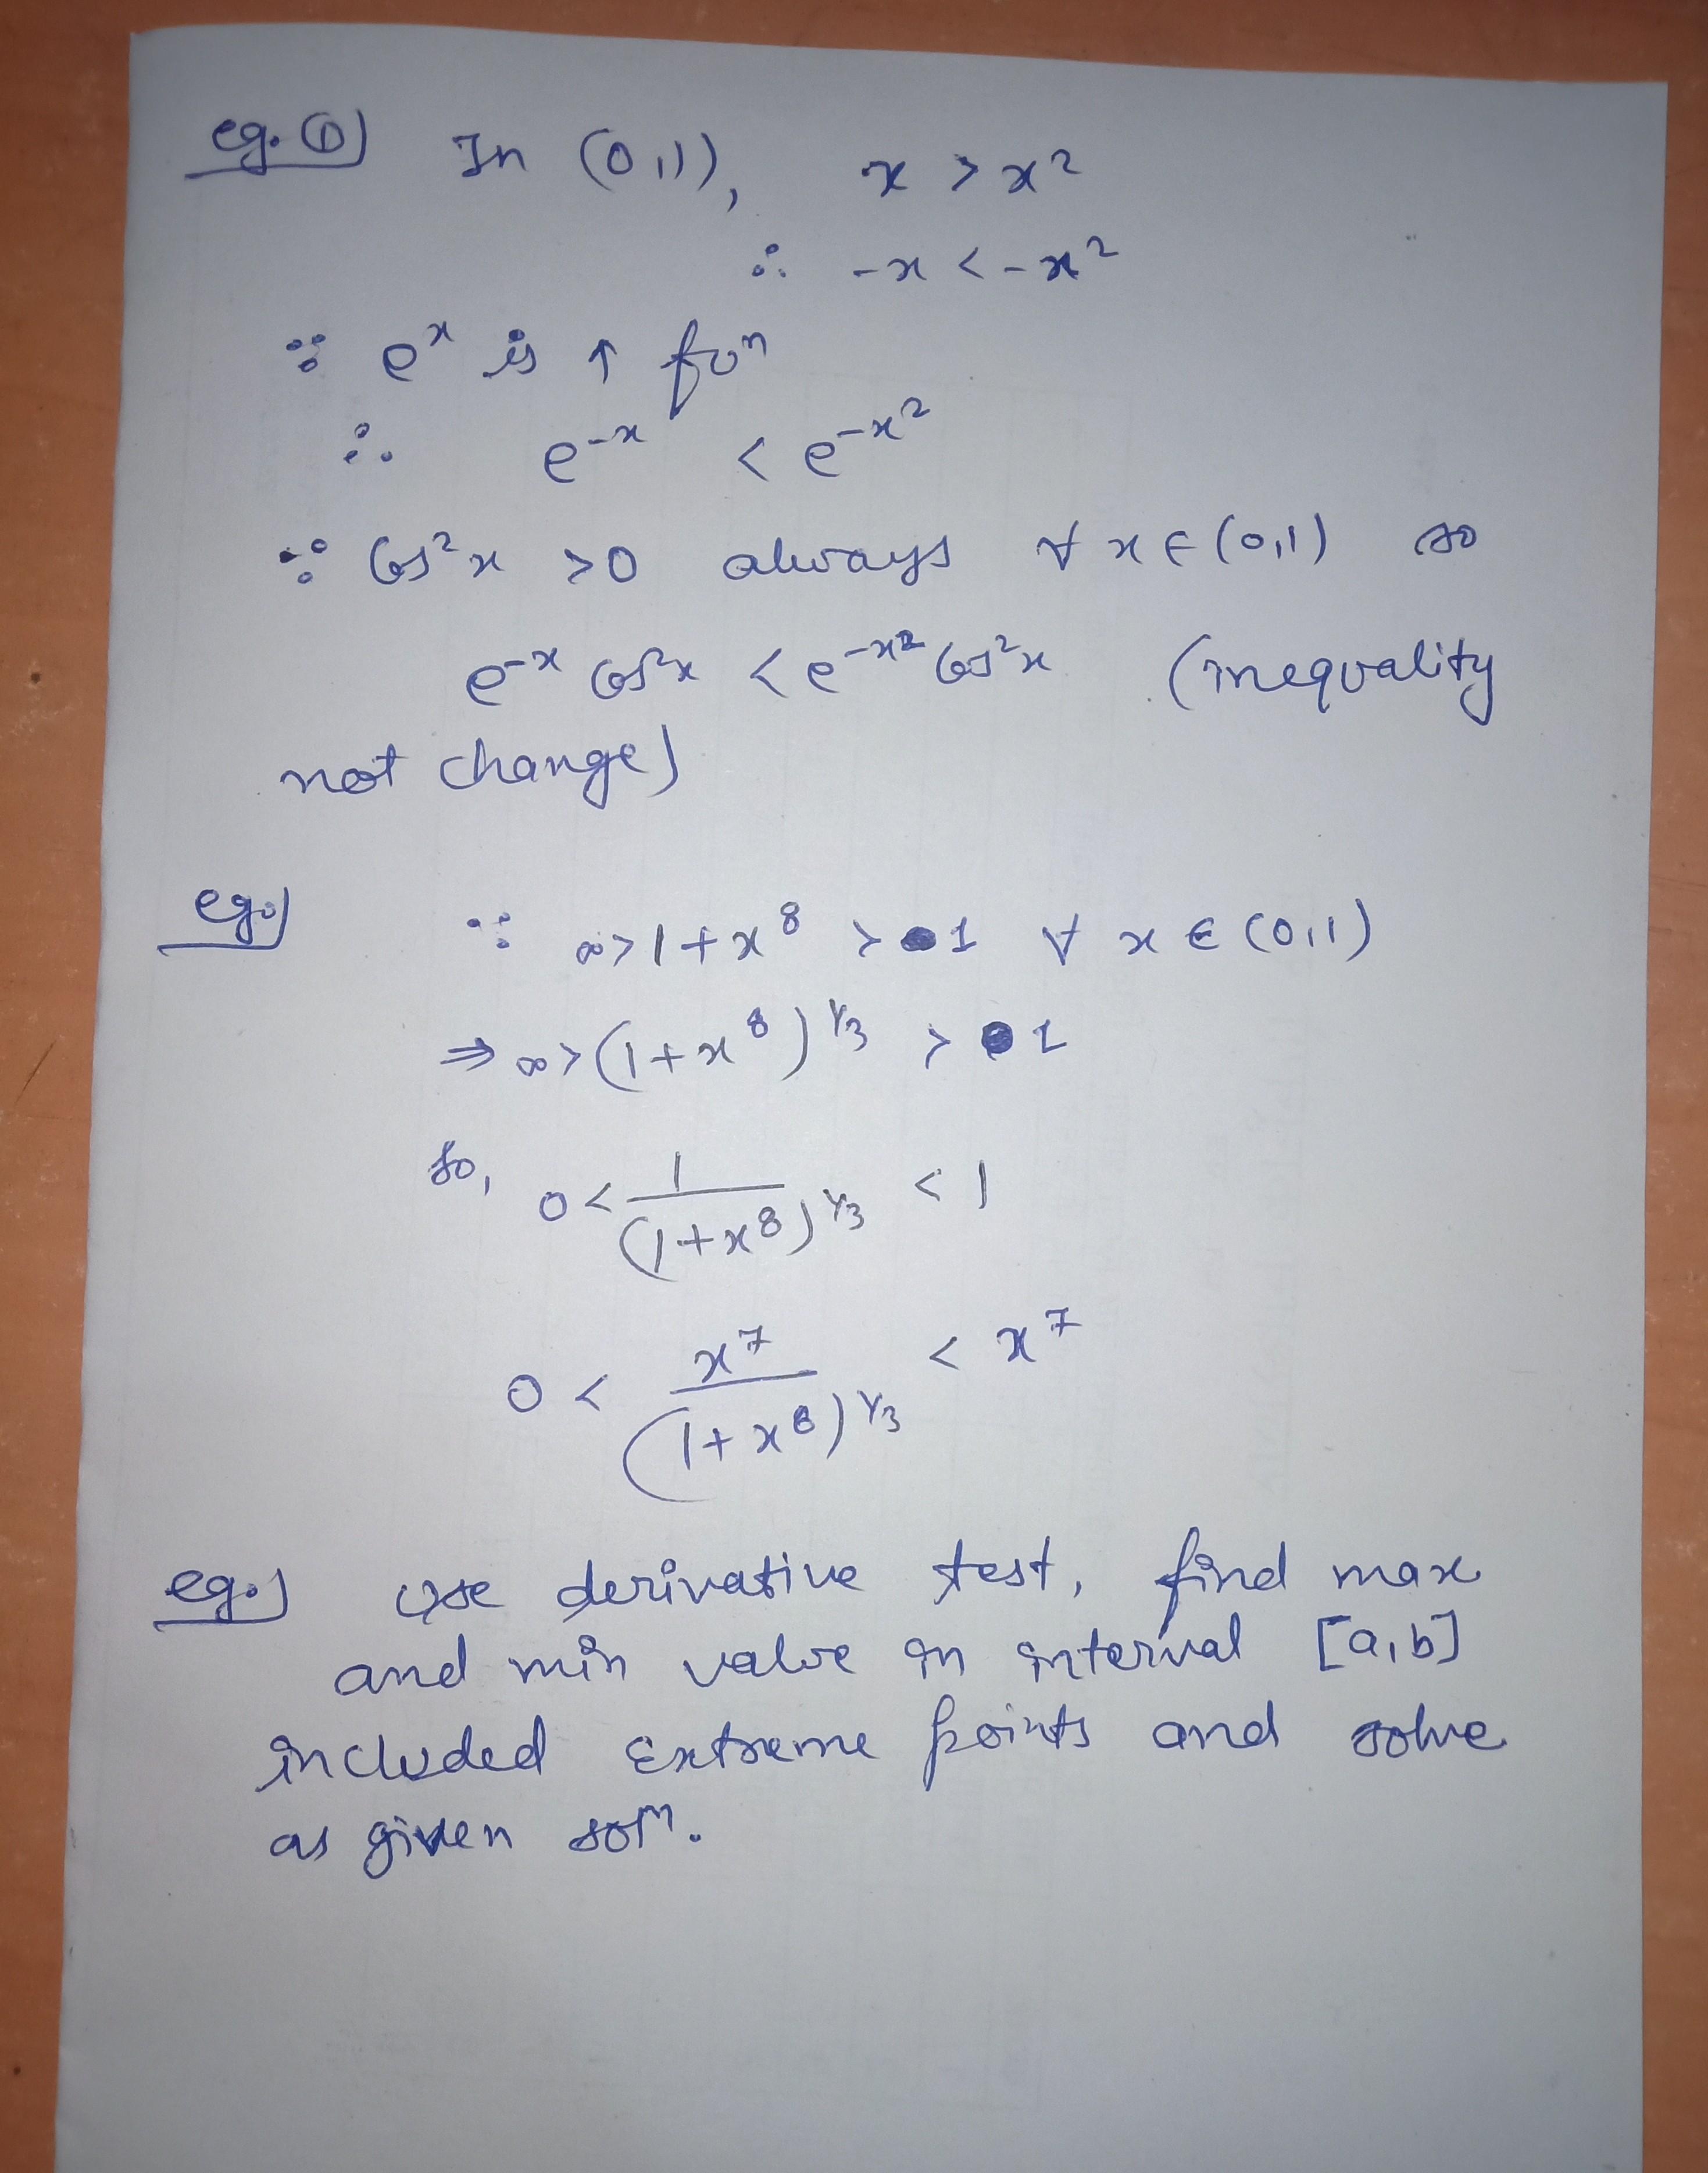 eg. ①) In (0,1), x > x²
∴ -x < -x²
∵ eˣ is ↑ fuⁿ
∴ e⁻ˣ < e^{-x²}
∵ Cos²x >0 always ∀ x ∈ (0,1) so
e⁻ˣ Cos²x < e^{-x²} Cos²x (inequality
not change)
eg.) ∵ ∞>1+x⁸ > 1 ∀ x ∈ (0,1)
⇒ ∞>(1+x⁸)^{1/3} > 1
so, 0< 1/(1+x⁸)^{1/3} < 1
0 < x⁷/(1+x⁸)^{1/3} < x⁷
eg.) Use derivative test, find max
and min value in interval [a,b]
included Extreme points and solve
as given solⁿ.